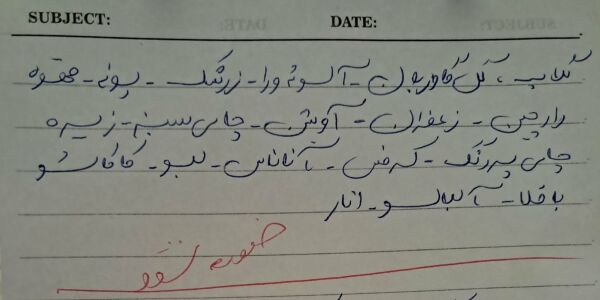 SUBJECT: DATE:
گلاب، گل گاوزبان - آلوئه ورا - زرشک - پونه - قهوه
دارچین - زعفران - آویشن - چای سبز - زیره
چای پررنگ - کرفس - آناناس - لبو - کاکائو
باقلا - آلبالو - انار
خورده نشود